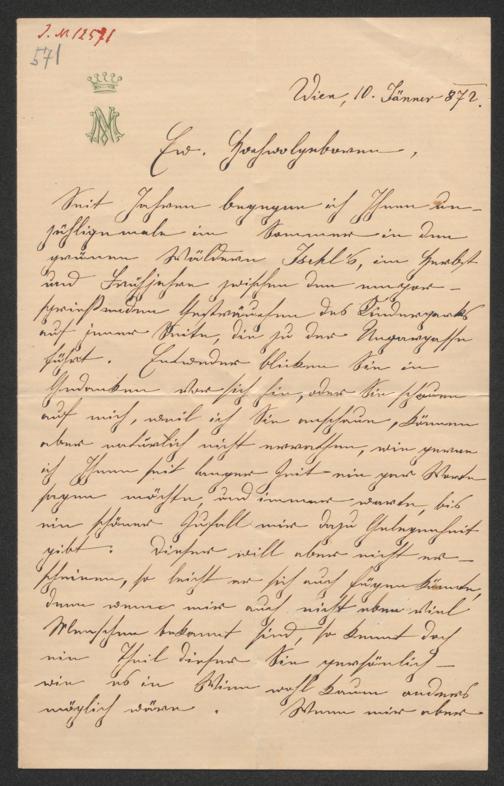 J. N. 12571
571
Wien, 10. Jänner 872.
Ew. Hochwolgeboren,
Seit Jahren begegne ich Ihnen un-
zähligemale im Sommer in den
grünen Wäldern Ischl's, im Herbst
und Frühjahre zwischen den empor-
sprießenden Gesträuchen des Kinderparks
auf jener Seite, die zu der Ungargasse
führt. Entweder blicken Sie in
Gedanken vor sich hin, oder Sie schauen
auf mich, weil ich Sie anschaue, können
aber natürlich nicht errathen, wie gerne
ich Ihnen seit langer Zeit ein par Worte
sagen möchte, und immer warte, bis
ein schöner Zufall mir dazu Gelegenheit
gibt. Dieser will aber nicht er-
scheinen, so leicht er sich auch fügen könnte,
denn wenn mir auch nicht eben viel
Menschen bekannt sind, so kennt doch
ein Theil dieser Sie persönlich –
wie es in Wien wohl kaum anders
möglich wäre. Wenn mir aber